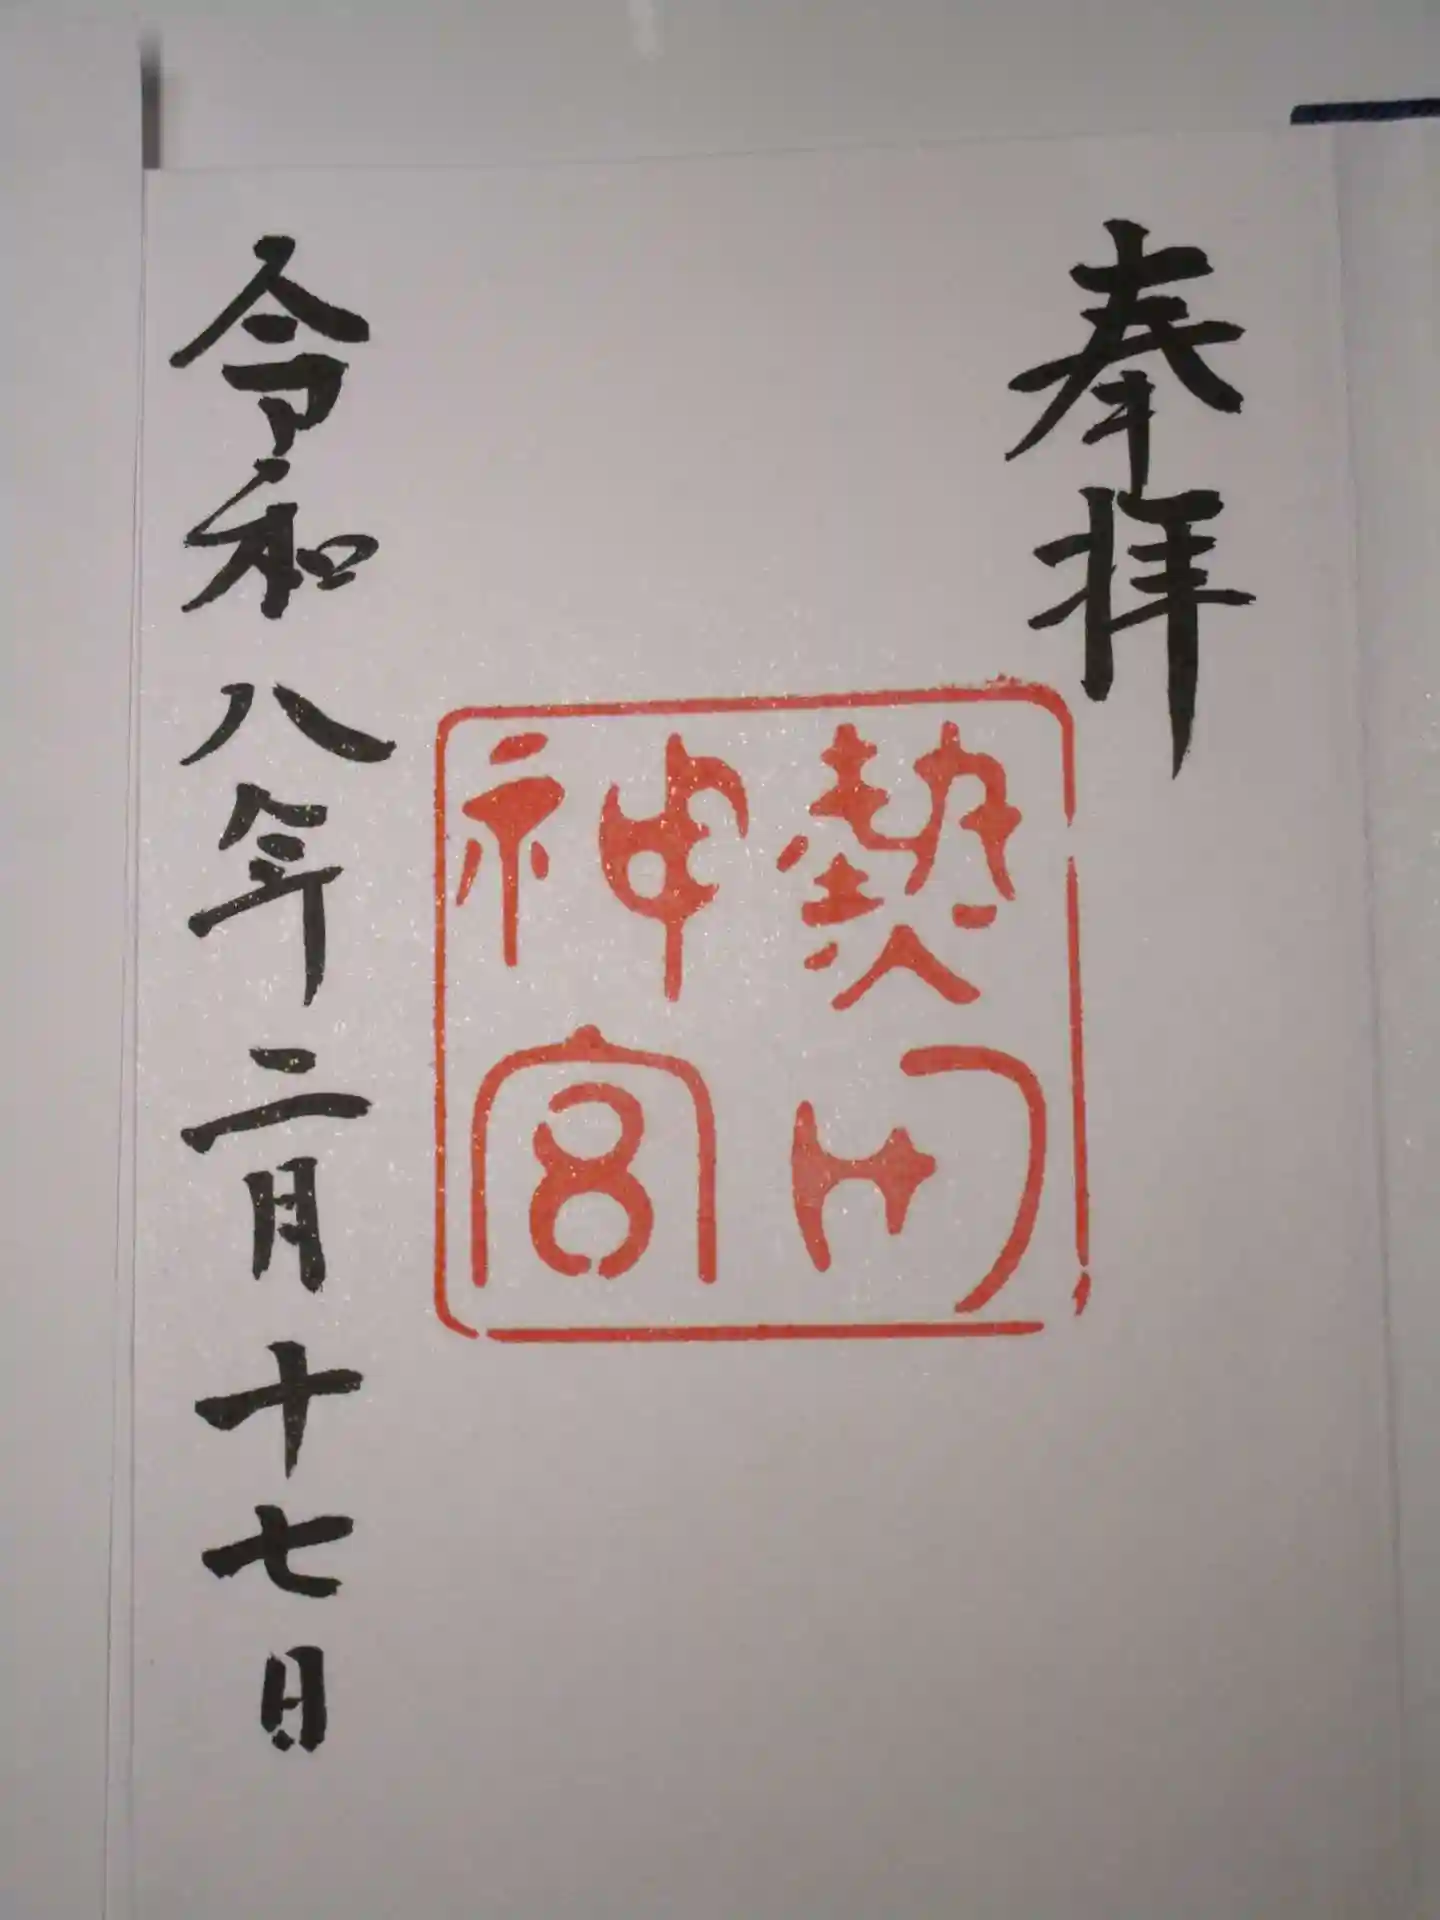 奉拝
熱田
神宮
令和八年二月十七日